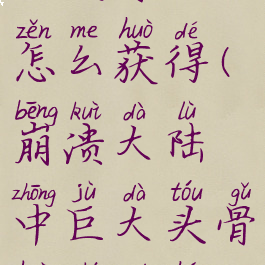 zěn me huò dé
怎么获得(
bēng kuì dà lù
崩溃大陆
zhōng jù dà tóu gǔ
中巨大头骨